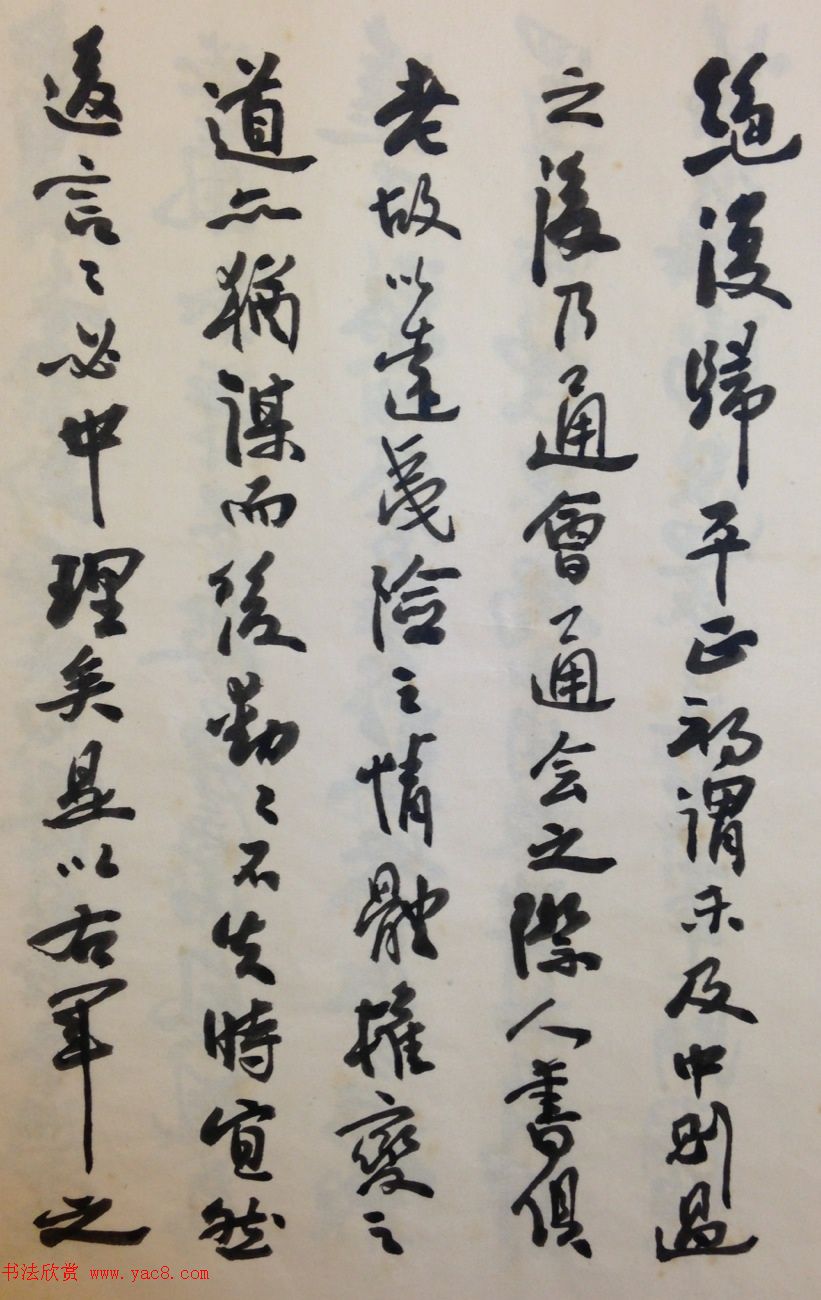 絕復歸平正初謂未及中則過
之後乃通會通会之際人書俱
老故以達夷險之情體權變之
道亦猶謀而後動〻不失時宜然
後言〻必中理矣是以右軍之
书法欣赏 www.yac8.com